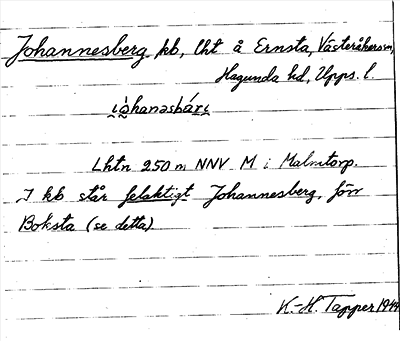 Johannesberg kb, lht å Ernsta, Västeråkers sn,
Hagunda hd, Upps. l.
Lhtn 250 m NNV M i Malmtorp.
I kb står felaktigt Johannesberg, förr
Boksta (se detta).
K.-H. Tapper 1944